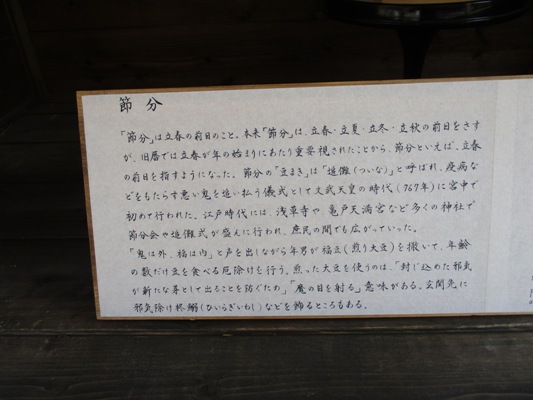 節分
「節分」は立春の前日のこと。本来「節分」は、立春・立夏・立冬・立秋の前日をさす
が、旧暦では立春が年の始まりにあたり重要視されたことから、節分といえば、立春
の前日を指すようになった。節分の「豆まき」は「追儺(ついな)」と呼ばれ、疫病な
どをもたらす悪い鬼を追い払う儀式として文武天皇の時代(767年)に宮中で
初めて行われた。江戸時代には、浅草寺や亀戸天満宮など多くの神社で
節分会や追儺式が盛んに行われ、庶民の間でも広がっていった。
「鬼は外、福は内」と声を出しながら年男が福豆(煎り大豆)を撒いて、年齢
の数だけ豆を食べる厄除けを行う。煎った大豆を使うのは、「封じ込めた邪気
が新たな芽として出ることを防ぐため」「魔の目を射る」意味がある。玄関先に
邪気除け柊鰯(ひいらぎいわし)などを飾るところもある。